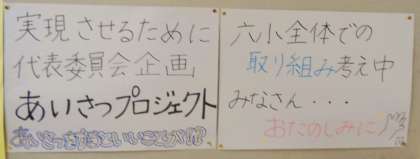 実現させるために
代表委員会企画
あいさつプロジェクト
あいさつをするといいことが!?
六小全体での
取り組み考え中
みなさん・・・
おたのしみに